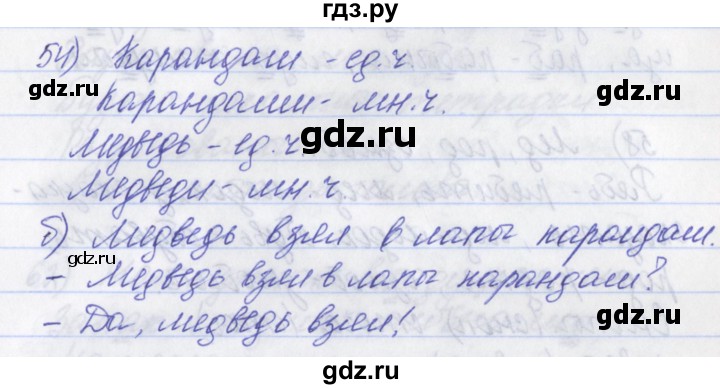 гдз.ру
54) Карандаш - ед.ч.
Карандаши - мн.ч.
gdz.ru
gdz.ru
Медведь - ед.ч.
Медведи - мн.ч.
gdz.ru
б) Медведь взял в лапы карандаш.
gdz.ru
- Медведь взял в лапы карандаш?
- Да, медведь взял!
gdz.ru